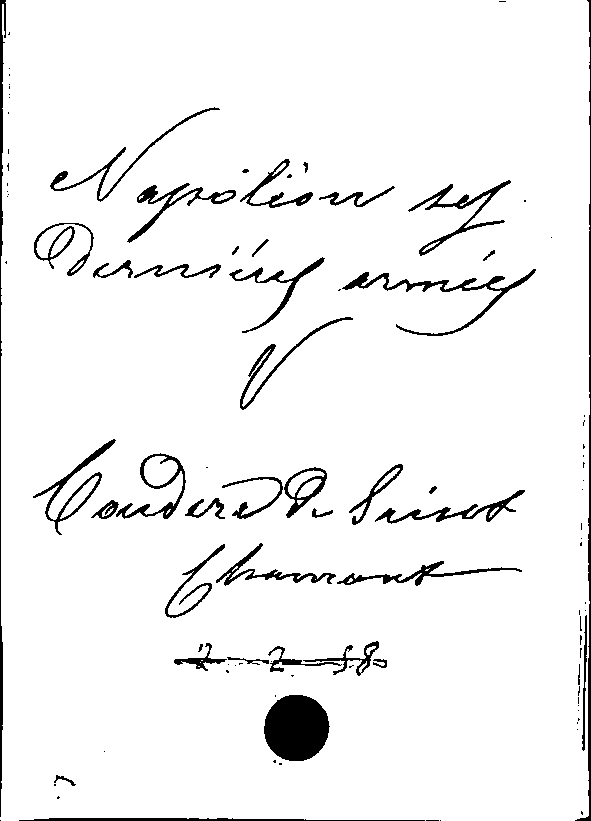 Napoléon ses
Derniéres armées
V
Couderc de Saint
Chamant